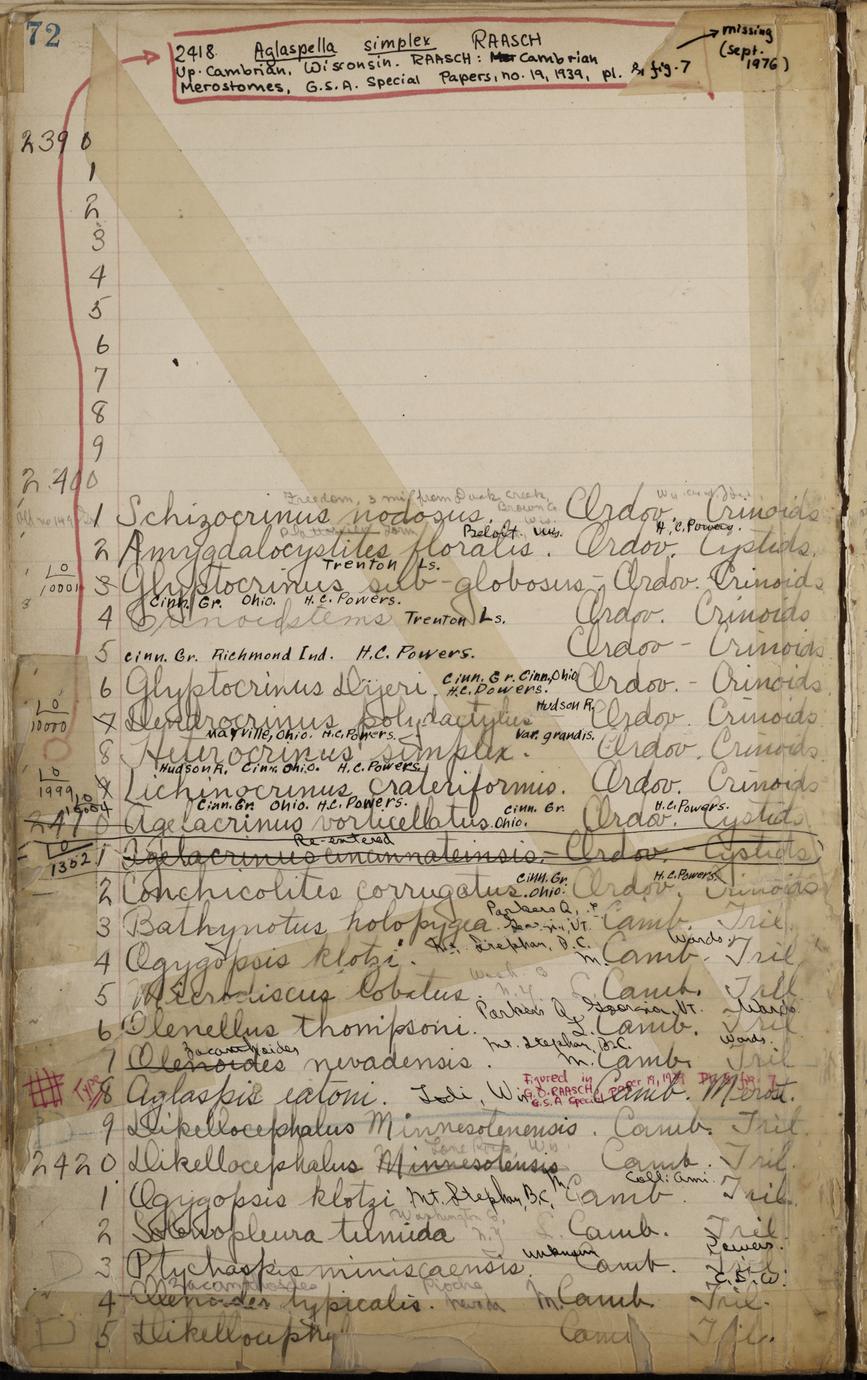 72
2418. Aglaspella simplex RAASCH → missing (sept. 1976)
Up. Cambrian, Wisconsin. RAASCH: Cambrian
Merostomes, G.S.A. Special Papers, no. 19, 1939, pl. fig. 7
2390
1
2
3
4
5
6
7
8
9
2400
Freedom, 3 mi from Duck creek, Brown Co Wis.
1 Schizocrinus nodosus. Ordov. Crinoids
Beloit Wis. H.C. Powers.
2 Amygdalocystites floralis. Ordov. Cystids.
Trenton Ls.
LO 1000 3 Glyptocrinus sub-globosus - Ordov. Crinoids
Cinn. Gr. Ohio. H.C. Powers.
4 Crinoid stems Trenton Ls. Ordov. Crinoids
5 Cinn. Gr. Richmond Ind. H.C. Powers. Ordov - Crinoids
6 Glyptocrinus Dyeri. Cinn. Gr. Cinn, Ohio H.C. Powers. Ordov. - Crinoids
LO 10000 7 Dendrocrinus polydactylus Hudson R. Ordov. Crinoids
Mayville, Ohio. H.C. Powers. Var. grandis.
8 Heterocrinus simplex. Ordov. Crinoids
Hudson R. Cinn. Ohio. H.C. Powers.
LO 1999 9 Lichinocrinus crateriformis. Ordov. Crinoids
Cinn. Gr. Ohio. H.C. Powers.
2410 Agelacrinus vorticellatus. Cinn. Gr. Ohio. Ordov. H.C. Powers. Cystids
Re-entered
LO 1302 1 Agelacrinus cincinnateinsis. - Ordov. Cystids
2 Conchicolites corrugatus. Cinn. Gr. Ohio. Ordov. H.C. Powers Crinoids
3 Bathynotus holopygea. Parkers Q, Georgia, VT. Camb. Tril.
4 Ogygopsis klotzi. Mt. Stephan, B.C. M. Camb. Wards Tril.
5 Microdiscus lobatus. N.Y. Camb. Tril
6 Olenellus thompsoni. Parkers Q, Georgia, VT. L. Camb. Wards Tril
Zacanthoides
7 Olenoides nevadensis. Mt. Stephan, B.C. M. Camb. Wards. Tril
# Type 8 Aglaspis eatoni. Lodi, Wis Camb. Merost.
Figured in
G.O. RAASCH, Paper 19, 1939
G.S.A. Special
9 Dikellocephalus Minnesotenensis. Camb. Tril.
2420 Dikellocephalus Minnesotensis Camb. Tril.
1 Ogygopsis klotzi Mt. Stephan, B.C. M. Camb. Coll: Ami. Tril.
2 Solenopleura tumida Washington Co, N.Y L. Camb. Tril.
3 Ptychaspis miniscaensis. unknown Camb. Powers. Tril.
C.E.W.
Zacanthoides
4 Olenoides typicalis. Pioche Nevada M. Camb. Tril.
5 Dikelloceph Camb Tril.